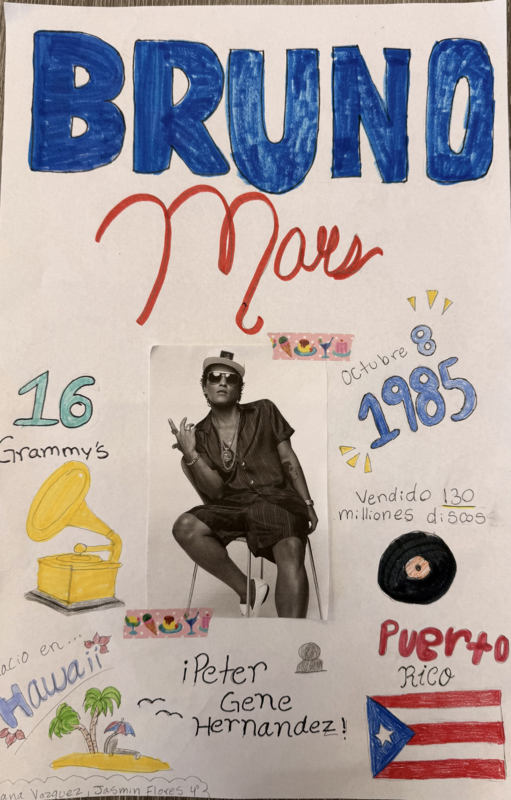 BRUNO
Mars
Octubre 8
1985
16
Grammy's
Vendido 130
milliones discos
Puerto
Rico
acio en...
Hawaii
¡Peter
Gene
Hernandez!
ana Vozquez, Jasmin Flores 4°